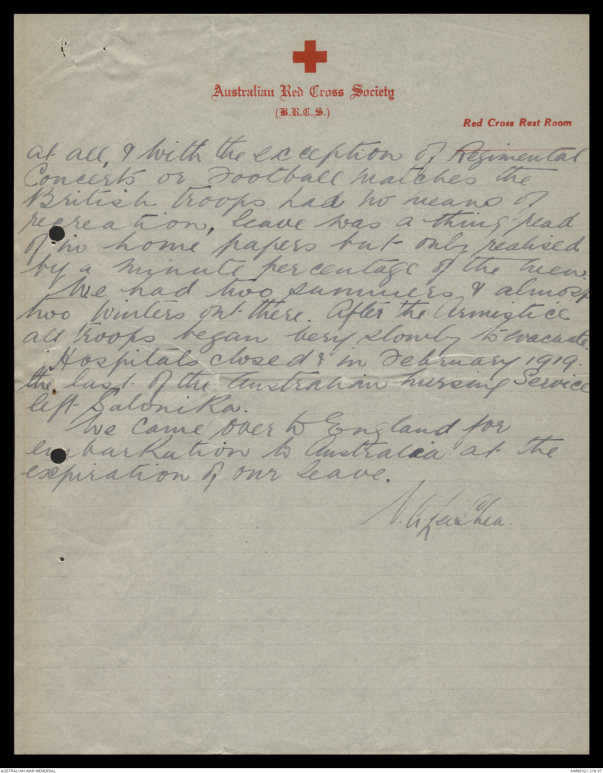 Australian Red Cross Society
(B.R.C.S.)
Red Cross Rest Room
at all, & with the exception of Regimental
Concerts or Football matches the
British troops had no means of
recreation, leave was a thing read
of in home papers but only realised
by a minute percentage of the men.
We had two summers & almost
two winters out there. After the Armistice
all troops began very slowly to evacuate.
Hospitals closed & in February 1919
the last of the Australian Nursing Service
left Salonika.
We came over to England for
embarkation to Australia at the
expiration of our leave.
AUSTRALIAN WAR MEMORIAL